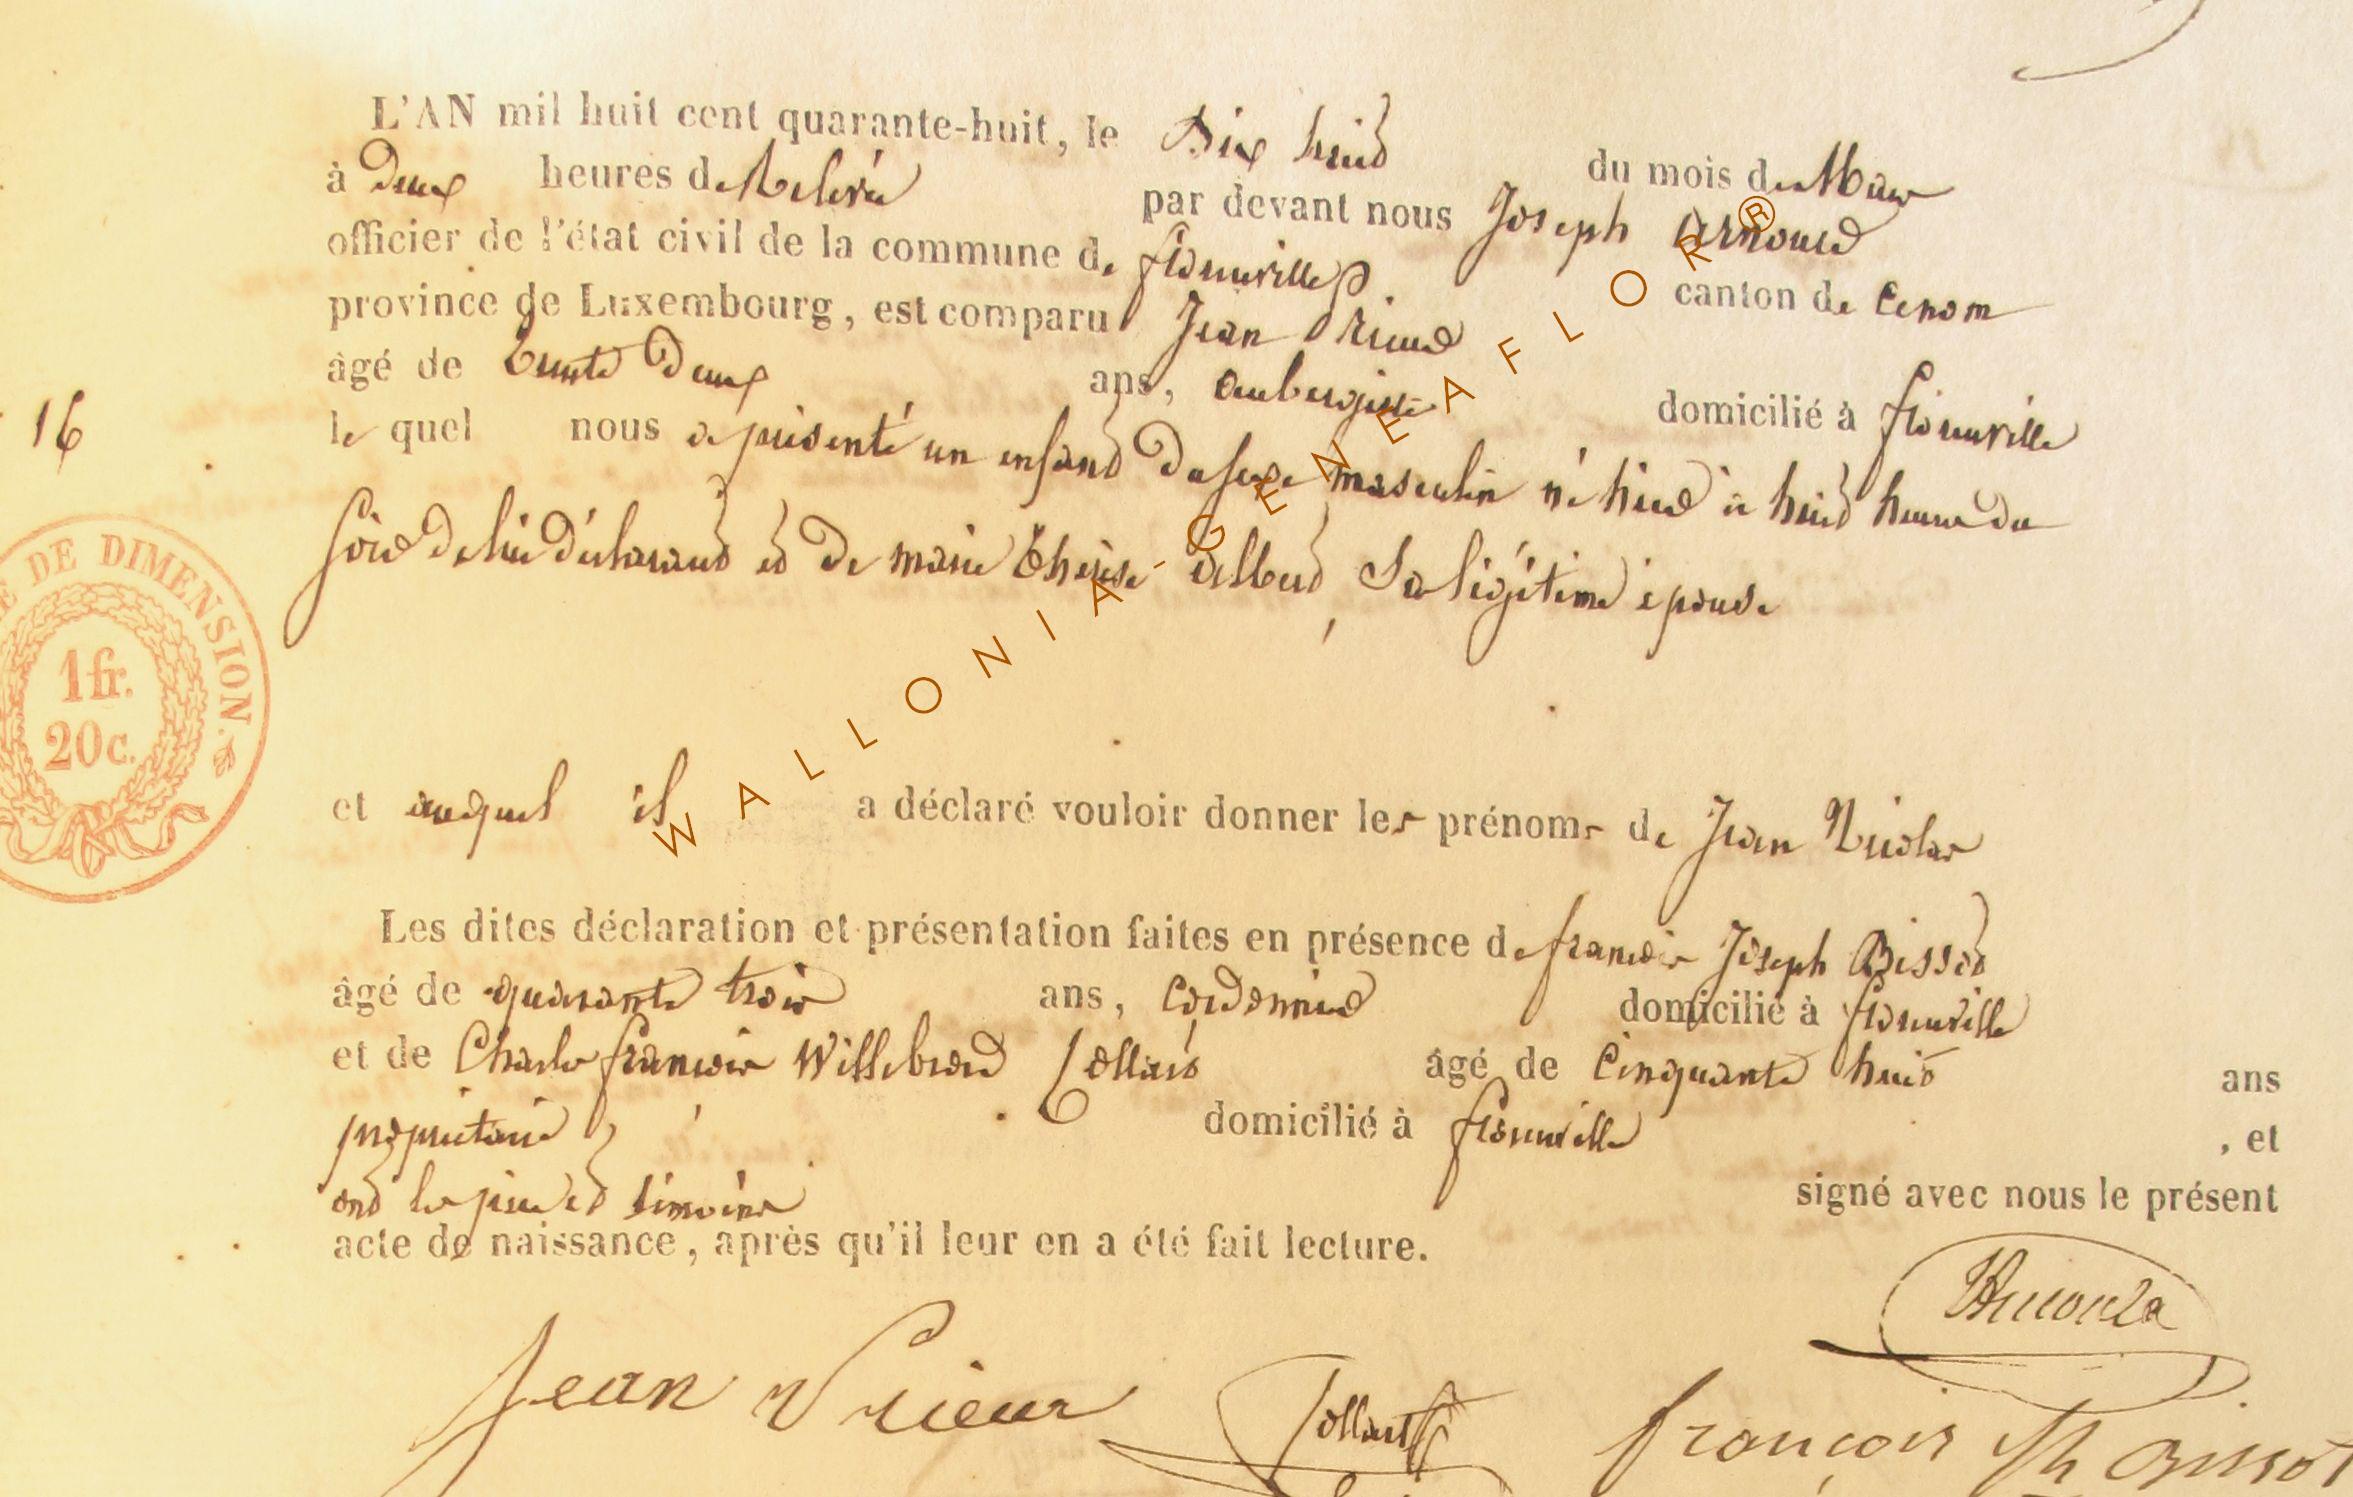 L'AN mil huit cent quarante-huit, le Dix huit du mois de Mars
à Deux heures de Relevée par devant nous Joseph Arnould
officier de l'état civil de la commune de florenville canton de Idem
province de Luxembourg, est comparu Jean Prieur
âgé de trente Deux ans, aubergiste domicilié à florenville
le quel nous a présenté un enfant Du sexe masculin né hier à huit heures du
16
soir De lui Déclarant et De marie thérèse allard, Sa légitime épouse
TIMBRE DE DIMENSION.
1 fr.
20c.
et auquel il a déclaré vouloir donner les prénoms de Jean Nicolas
Les dites déclaration et présentation faites en présence de françois Joseph Bissot
âgé de quarante trois ans, cordonnier domicilié à florenville
et de Charles françois Willebrord Collard âgé de Cinquante huit ans
propriétaire domicilié à florenville, et
ont les père et témoins signé avec nous le présent
acte de naissance, après qu'il leur en a été fait lecture.
Jean Prieur Collard françois Jh Bissot
WALLONIA-GENEAFLOR®